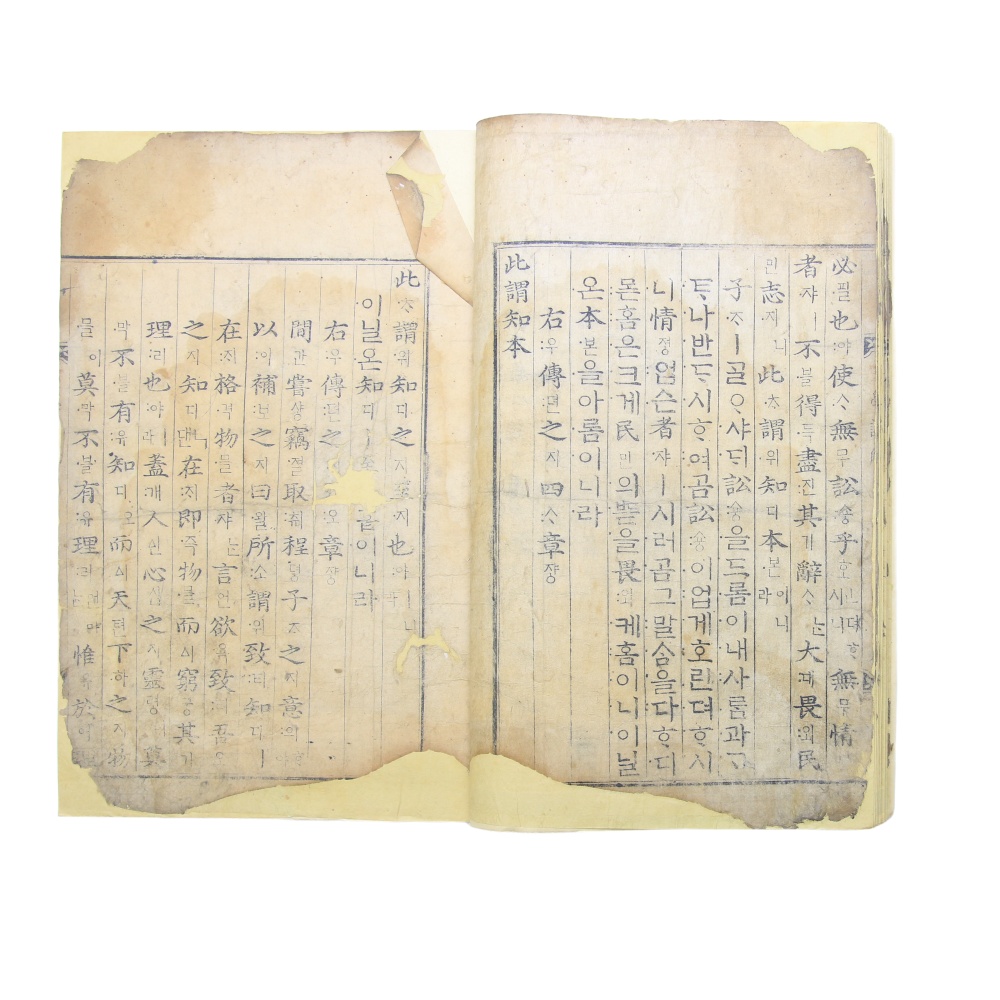 必필也야使ᄉᆞ無무訟숑乎호ᅵ신뎌ᄒᆞ시니無무情졍
者쟈ㅣ不블得득盡진其기辭ᄉᆞᄂᆞᆫ大대畏외民
민志지니此ᄎᆞ謂위知디本본이니라
子ᄌᆞㅣᄀᆞᆯᄋᆞ샤ᄃᆡ訟숑을드롬이내사ᄅᆞᆷ과ᄀᆞ
ᄐᆞ나반ᄃᆞ시ᄒᆞ여곰訟숑이업게호린뎌ᄒᆞ시
니情졍업슨者쟈ㅣ시러곰그말ᄉᆞᆷ을다ᄒᆞ디
몯홈은크게民민의ᄠᅳᆮ을畏외케홈이니이닐
온本본을아롬이니라
右우傳뎐之지四ᄉᆞ章쟝
此謂知本
此ᄎᆞ謂위知디之지至지也야ㅣ니라
이닐온知디ㅣ至홈이니라
右우傳뎐之지五오章쟝
間간嘗샹竊졀取ᄎᆔ程뎡子ᄌᆞ之지意의
以이補보之지曰왈所소謂위致티知디ㅣ
在ᄌᆡ格격物믈者쟈ᄂᆞᆫ言언欲욕致티吾오
之지知디ᅟᅵᆫ댄在ᄌᆡ即즉物믈而이窮궁其기
理리也야ㅣ라蓋개人인心심之지靈령莫
막不블有유知디오而이天텬下하之지物
믈이莫막不블有유理리언마ᄂᆞᆫ惟유於어